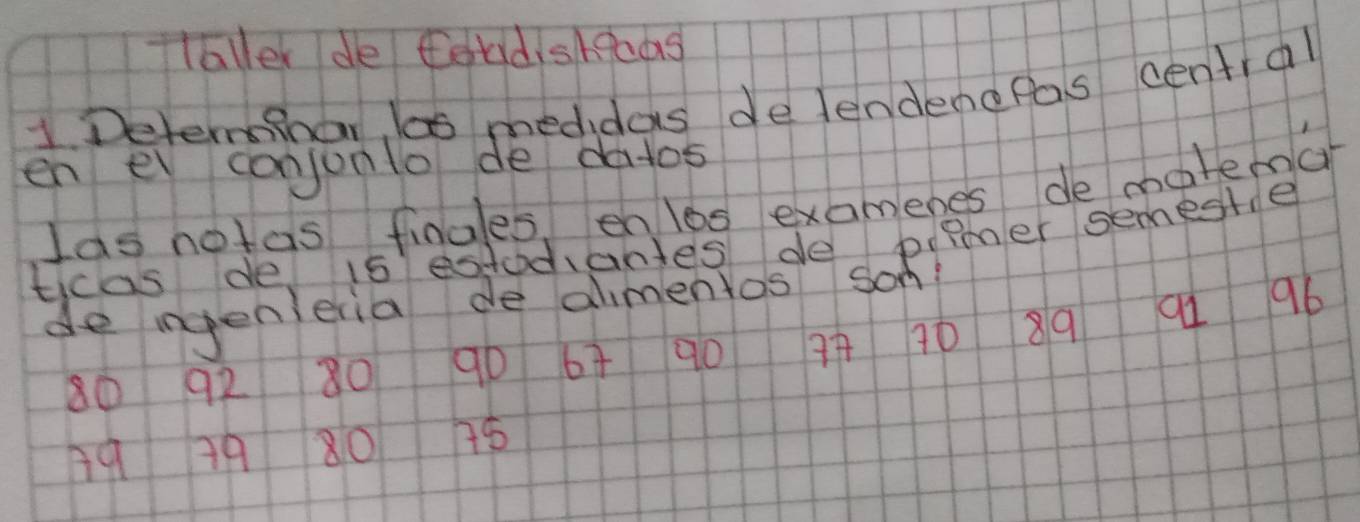 Taller de Estadisticas
1. Determinar las medidas de tendencias central
en el conjunto de datos
Las notas finales en los examenes de matemá
ticas de 15 estudiantes de primer semestre
de ingenieria de alimentos son:
80 92 80 90 67 90 77 70 89 91 96
79 79 80 75